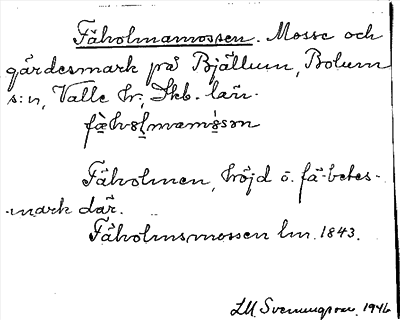 Fäholmamossen. Mosse och
gärdesmark på Bjällum, Bolum
s:n, Valle hr, Skb. län.
fæ̀hɷḷmamɷ̀sən
Fäholmen, höjd o. få-betes-
mark där.
Fäholmsmossen lm. 1843.
LM. Svenungsson. 1946